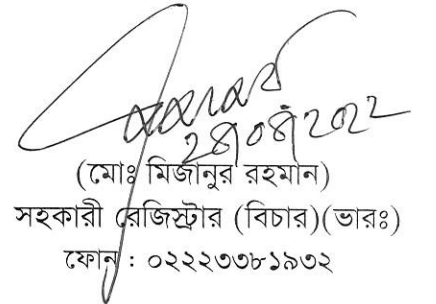 ২৪/০৪/২০২২
(মোঃ মিজানুর রহমান)
সহকারী রেজিস্ট্রার (বিচার)(ভারঃ)
ফোন : ০২২২৩৩৮১৯৩২